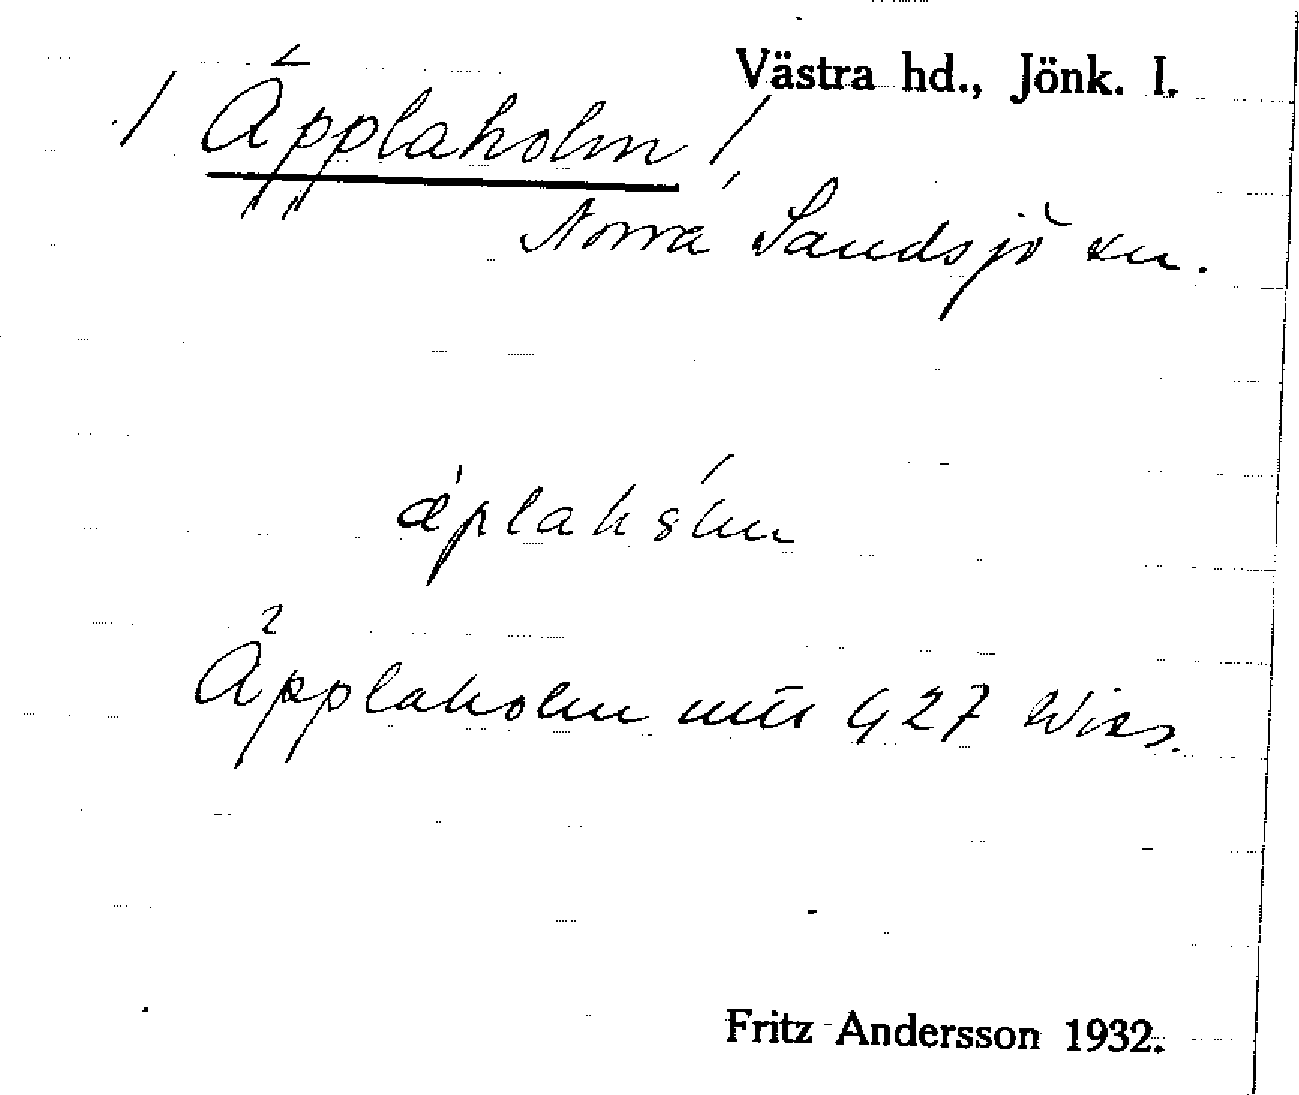 Västra hd., Jönk. l.
/ Äpplaholm /
Norra Sandsjö sn.
Äpplaholm 427 Wies.
Fritz Andersson 1932.